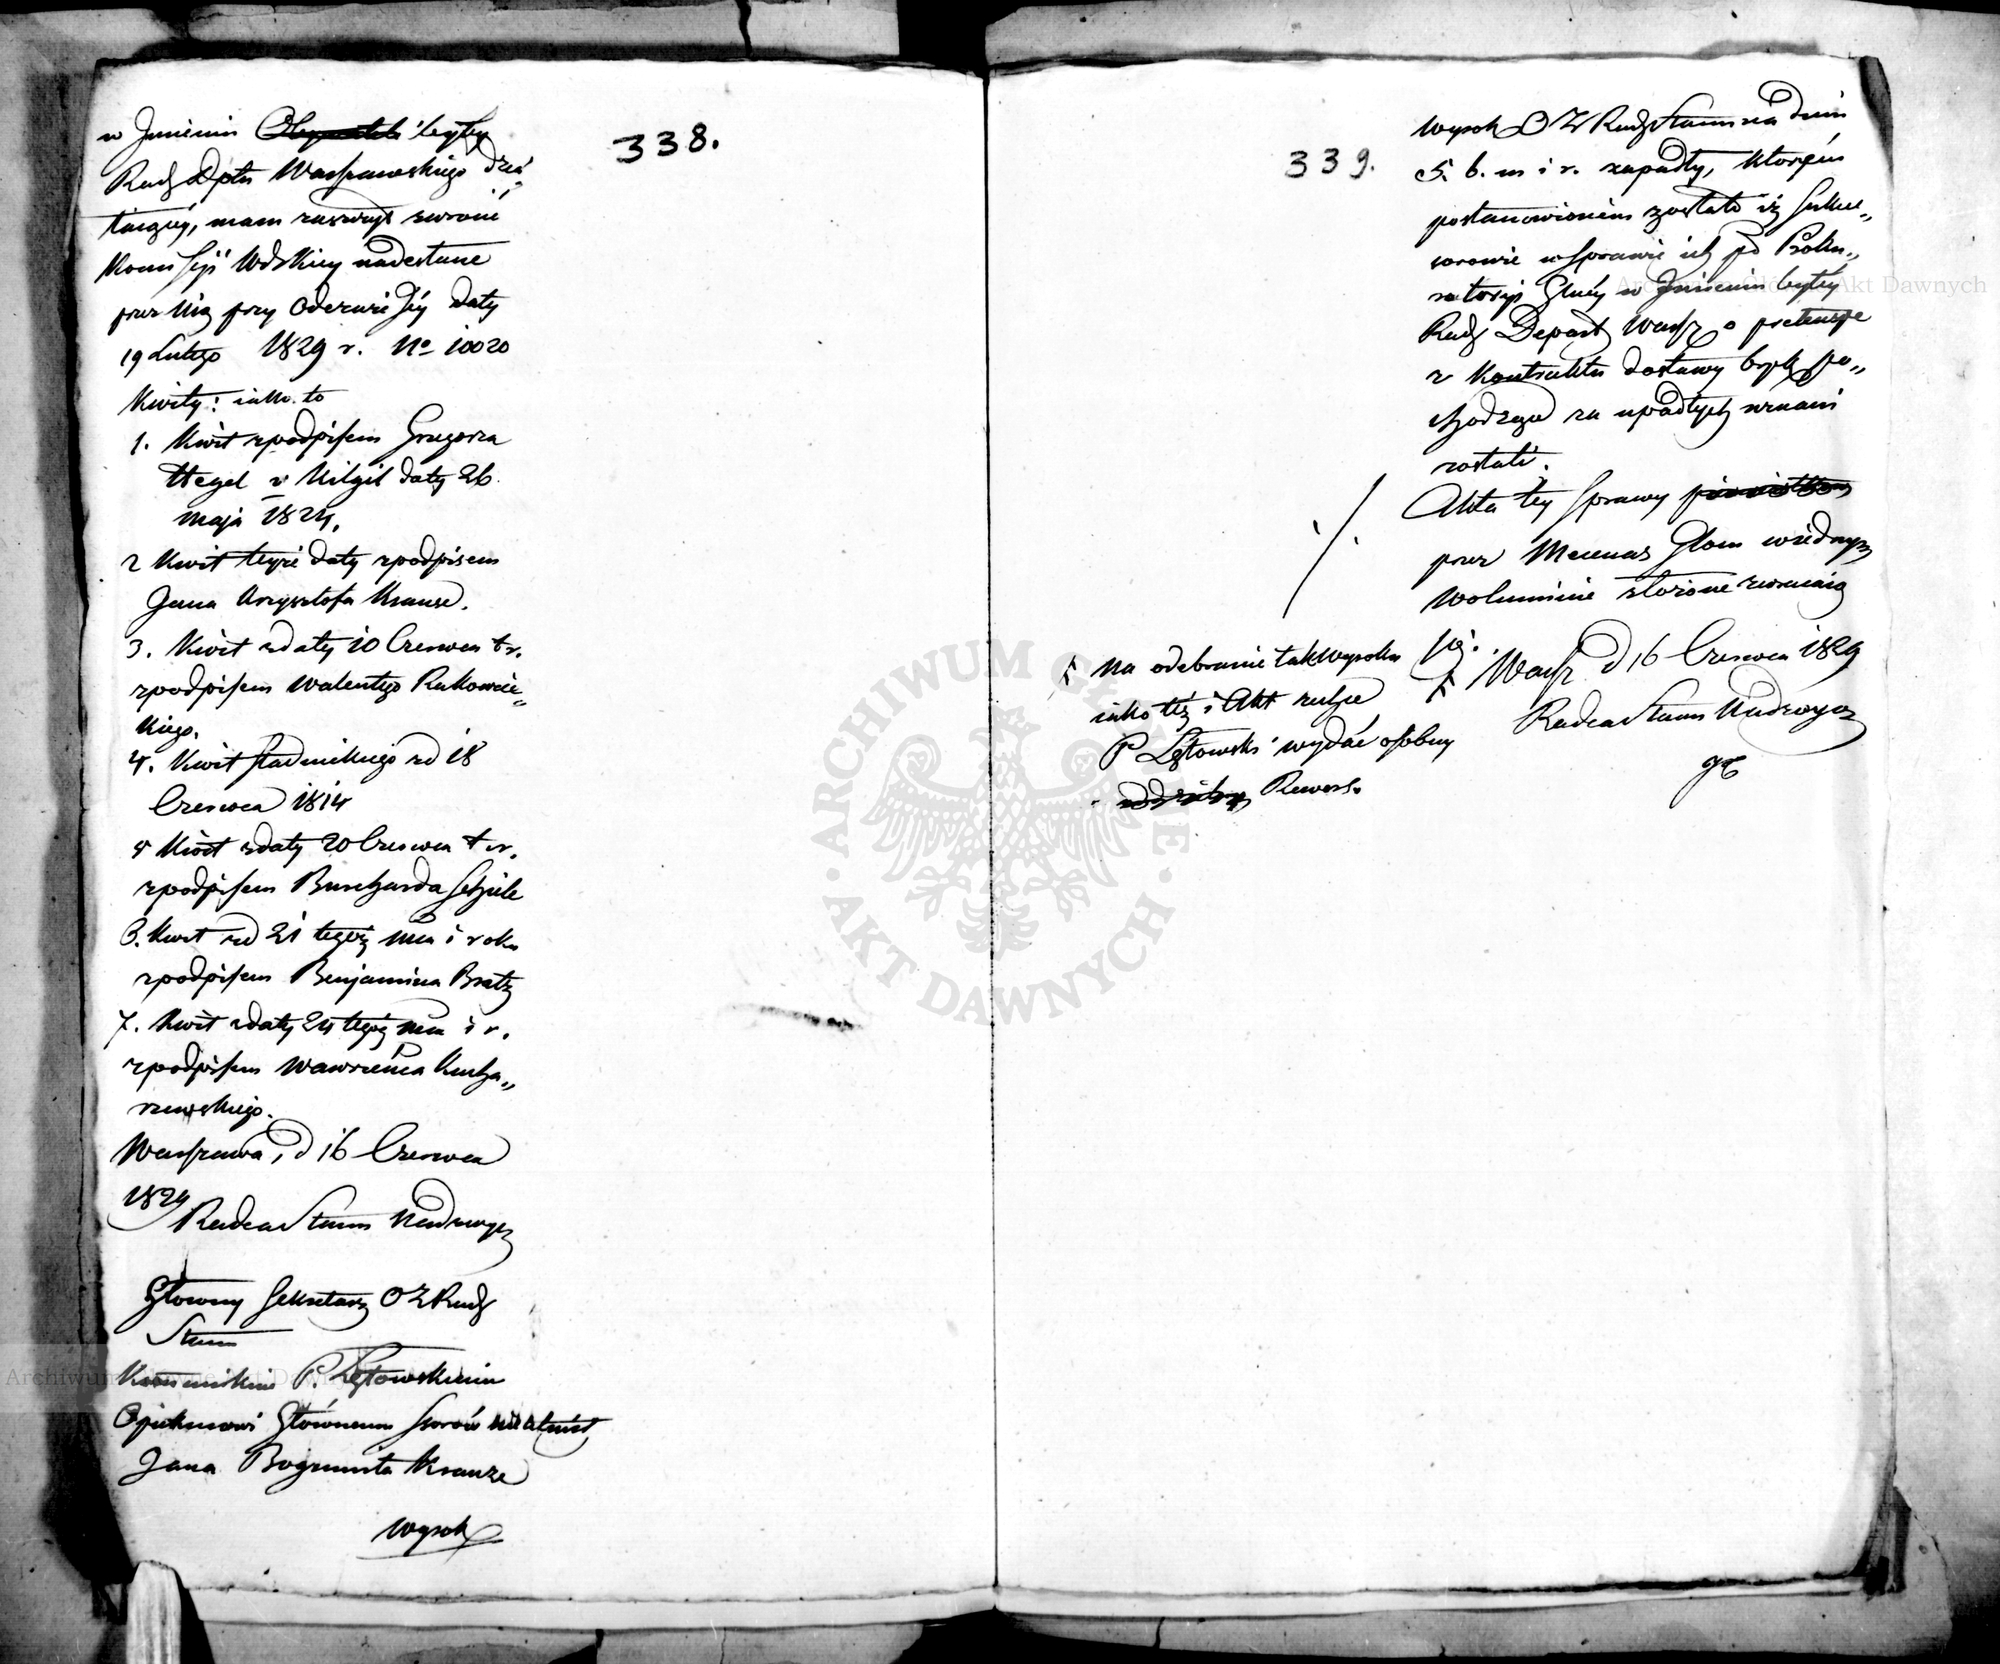 338.
w Jmieniu Obywateli byłey
Rady Dptu Warszawskiego dzia„
łaiącéy, mam zaszczyt zwrócić
Kommissyi Wdzkiey nadesłane
przez Nią przy Odezwie Jéy daty
19 Lutego 1829 r. No 10020
Kwity: iako to
1. Kwit z podpisem Grzegorza
Hegel v Kilgil daty 26
maja 1824.
2 Kwit teyże daty z podpisem
Jana Krzysztofa Krauze.
3. Kwit z daty 10 Czerwca t. r.
z podpisem Walentego Rakowie„
kiego.
4. Kwit Stadnikiego z d 18
Czerwca 1814
5 Kwit z daty 20 Czerwca t. r.
z podpisem Burcharda Schiele
6. Kwit z d 21 tegoż mca i roku
z podpisem Benjamina Bratz
7. Kwit z daty 24 tegoż mca i r.
z podpisem Wawrzeńca Kucha„
rzewskiego.
Warszawa, d 16 Czerwca
1829
Radca Stanu Nadzwycz
Głowny Sekretarz O Z Rady
Stanu
Kommunikuie P. Łętowskiemu
Opiekunowi Głównemu Sscorów
Jana Bogumiła Krauze
Wyrok
339.
Wyrok O Z Rady Stanu na dniu
5. b. m i r. zapadły, którym
postanowionem zostało iż Sukce„
sorowie w sprawie ich po Proku„
ratoryi Głnéy w Jmieniu byłéy
Rady Depart Warsz o pretensye
z Kontraktu dostawy bydła po„
chodzące za upadłych uznani
zostali.
Akta téy sprawy
przez Mecenas Glom w iednym
Woluminie złożone zwracaią
się.
Warsz d 16 Czerwca 1829
Radca Stanu Nadzwycz
Na odebranie tak Wyroku
iako téż i Akt zechce
P Łętowski wydać osobny
Rewers.